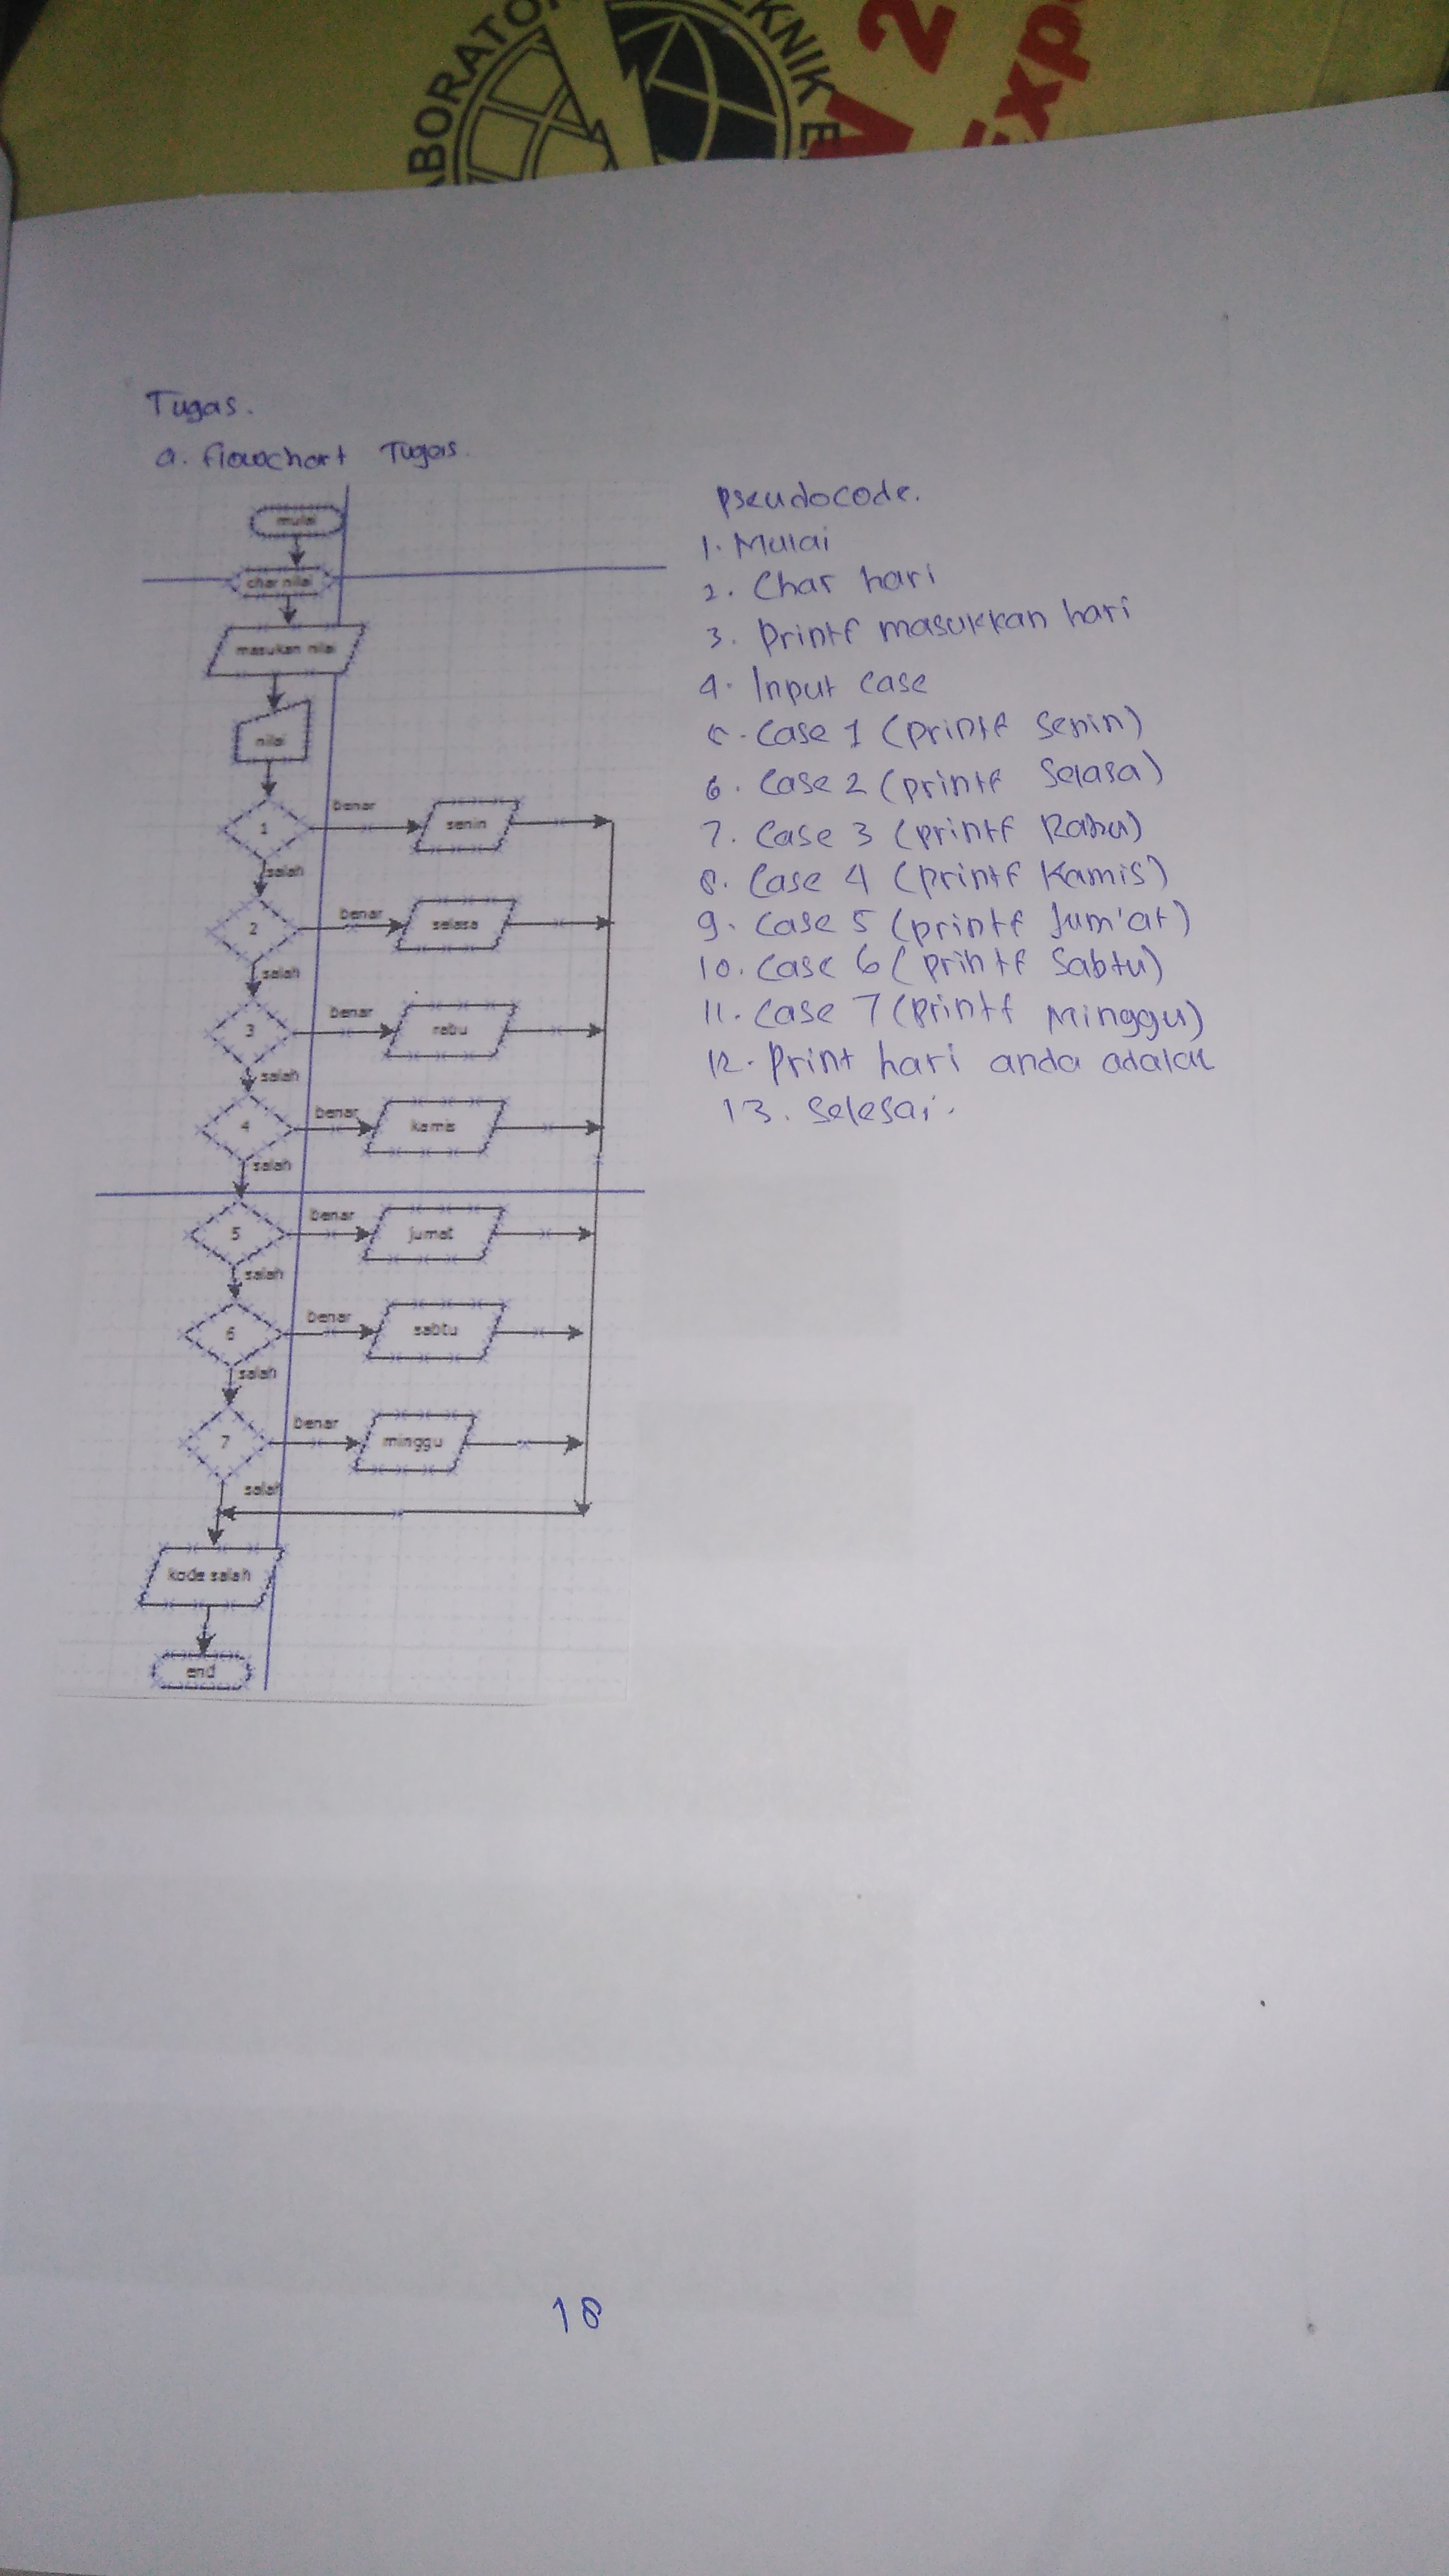 ABORATO
EKNIK E
V 2
Exp
Tugas.
a. flowchart Tugas.
mulai
char nilai
masukan nilai
nilai
1
benar
senin
salah
2
benar
selasa
salah
3
benar
rabu
salah
4
benar
kamis
salah
5
benar
jumat
salah
6
benar
sabtu
salah
7
benar
minggu
salah
kode salah
end
Pseudocode.
1. Mulai
2. Char hari
3. Printf masukkan hari
4. Input case
5. Case 1 (printf Senin)
6. Case 2 (printf Selasa)
7. Case 3 (printf Rabu)
8. Case 4 (printf Kamis)
9. Case 5 (printf Jum'at)
10. Case 6 (printf Sabtu)
11. Case 7 (printf Minggu)
12. Print hari anda adalah
13. Selesai.
18